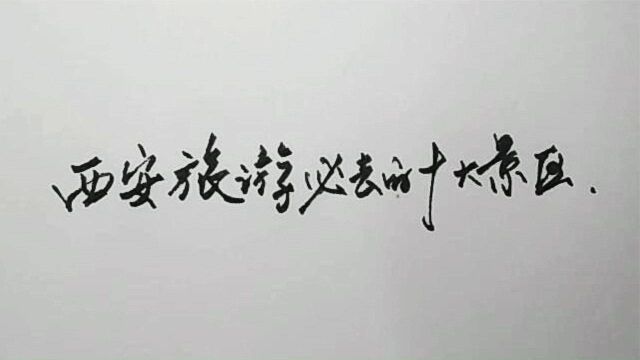 西安旅游必去的十大景区.